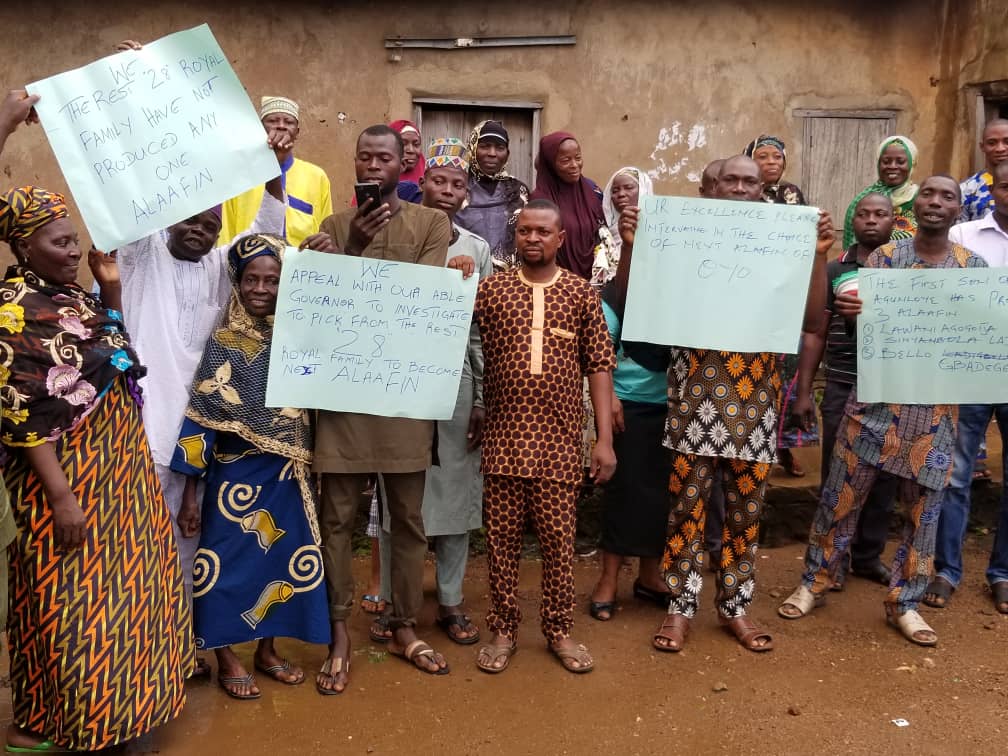 WE
THE REST "28" ROYAL
FAMILY HAVE NOT
PRODUCED ANY
ONE
ALAAFIN
WE
APPEAL WITH OUR ABLE
GOVERNOR TO INVESTIGATE
TO PICK FROM THE REST
"28"
ROYAL FAMILY TO BECOME
NEXT ALAAFIN
UR EXCELLENCE PLEASE
INTERVENE IN THE CHOICE
OF NEXT ALAAFIN OF
OYO
THE FIRST SON
AGUNLOYE HAS
3 ALAAFIN
1 LAWANI AGOGOJA
2 SIYANBOLA
3 BELLO
GBADEGE